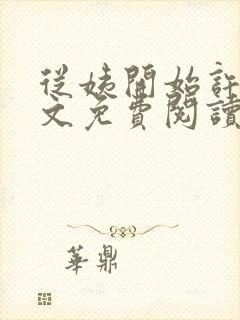 從姨開始註
文免費閱讀
華鼎